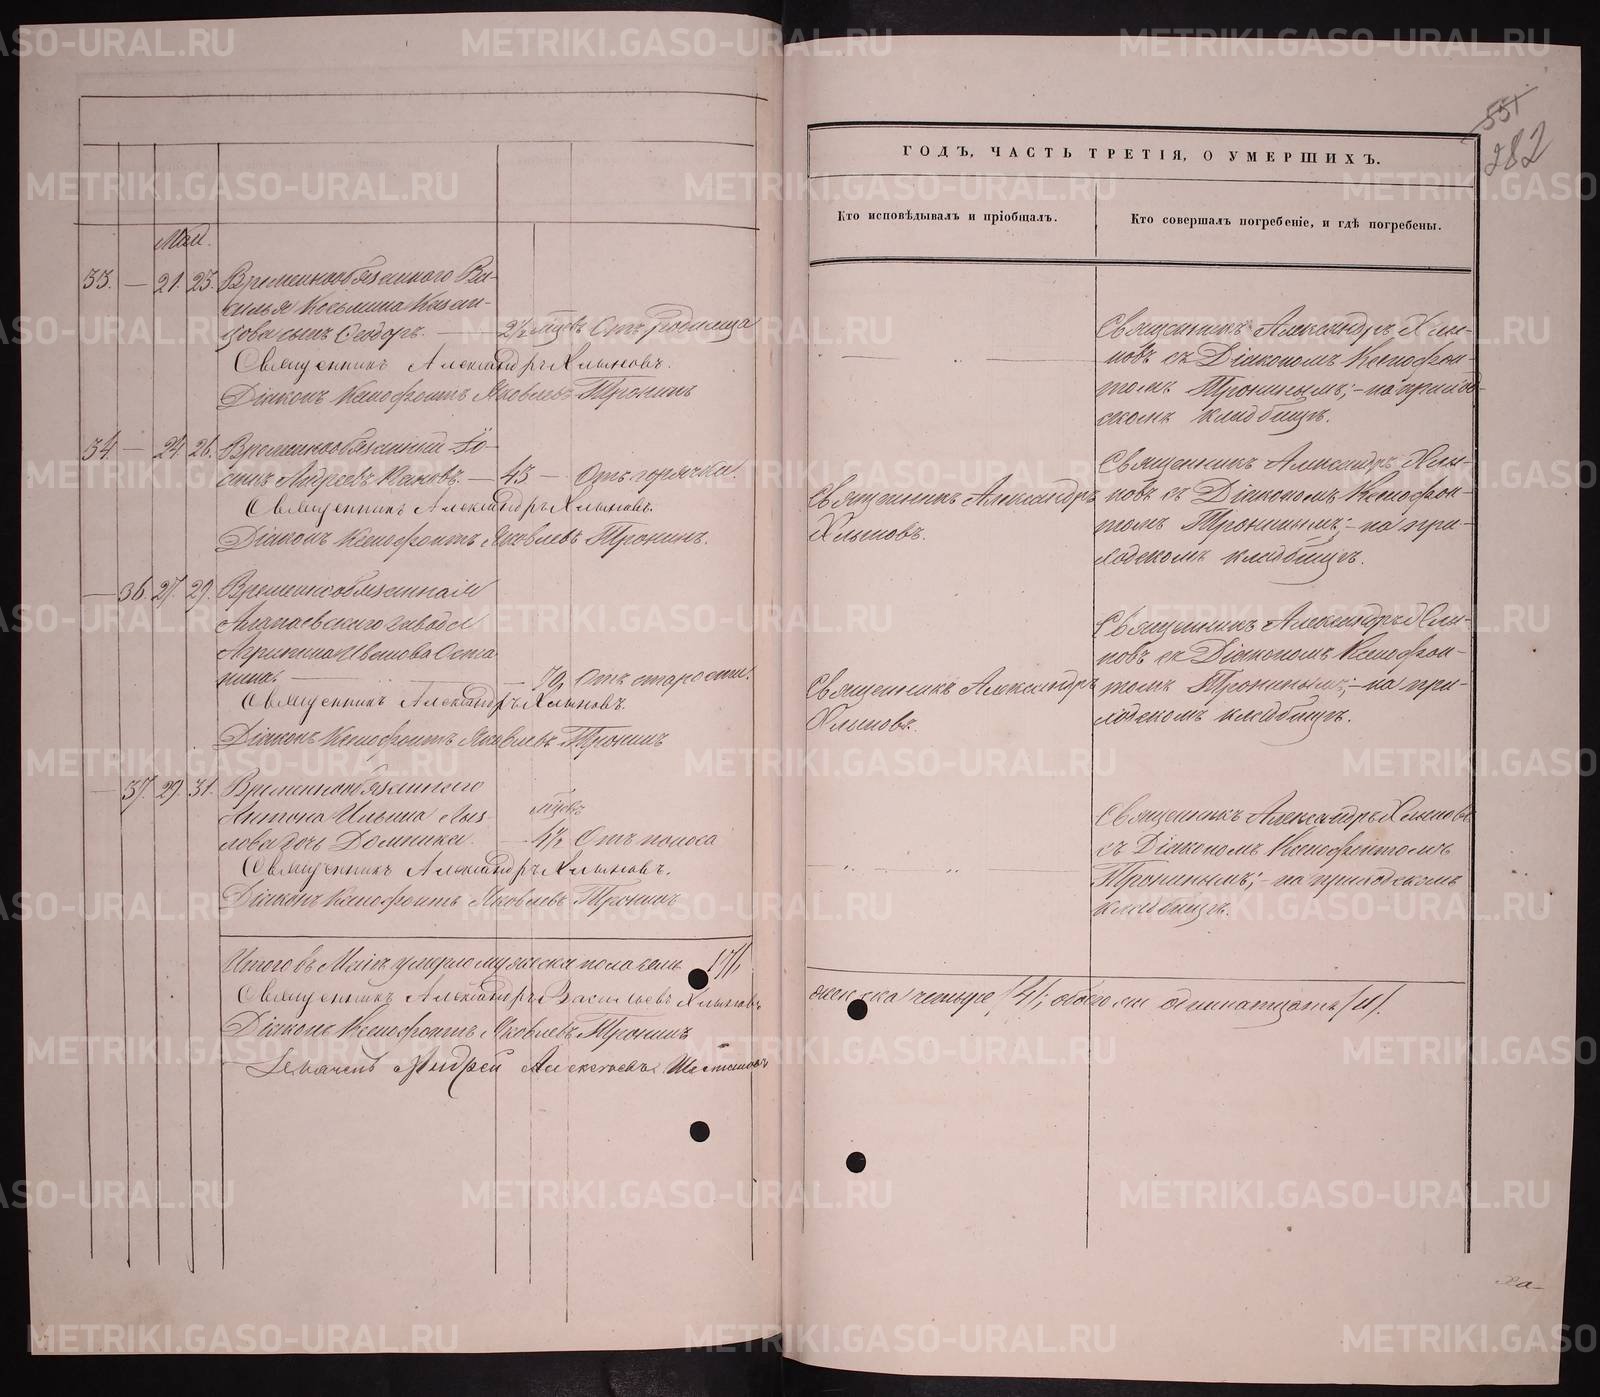 Май.
33. — 21. 23. Временнообязаннаго Ва-
силья Козьмина Казан-
цова сынъ Ѳеодоръ. — 2½ мѣсвъ Отъ родимца
Священникъ Александръ Хлыновъ.
Діаконъ Ксенофонтъ Яковлевъ Тронинъ
34. — 24. 26. Временнообязанный
Андреевъ — 43. — Отъ горячки.
Священникъ Александръ Хлыновъ.
Діаконъ Ксенофонтъ Яковлевъ Тронинъ.
— 36. 27. 29. Временнообязанная
Алапаевскаго завода
Агрипина Иванова Оста-
нина. — 70. Отъ старости.
Священникъ Александръ Хлыновъ.
Діаконъ Ксенофонтъ Яковлевъ Тронинъ
— 37. 29. 31. Временнообязаннаго
Антона Ильина Лыз-
лова дочь Домника. — 4½ мѣсвъ Отъ поноса
Священникъ Александръ Хлыновъ.
Діаконъ Ксенофонтъ Яковлевъ Тронинъ
Итого въ Маіѣ умерло мужеска пола семь /7/,
Священникъ Александръ Васильевъ Хлыновъ
Діаконъ Ксенофонтъ Яковлевъ Тронинъ
Андрей Алексѣевъ
551
282
ГОДЪ, ЧАСТЬ ТРЕТІЯ, О УМЕРШИХЪ.
Кто исповѣдывалъ и пріобщалъ.
Кто совершалъ погребеніе, и гдѣ погребены.
Священникъ Александръ Хлы-
новъ съ Діакономъ Ксенофон-
томъ Тронинымъ; — на приход-
скомъ кладбищѣ.
Священникъ Александръ
Хлыновъ.
Священникъ Александръ Хлы-
новъ съ Діакономъ Ксенофон-
томъ Тронинымъ; — на при-
ходскомъ кладбищѣ.
Священникъ Александръ
Хлыновъ.
Священникъ Александръ Хлы-
новъ съ Діакономъ Ксенофон-
томъ Тронинымъ; — на при-
ходскомъ кладбищѣ.
Священникъ Александръ Хлыновъ
съ Діакономъ Ксенофонтомъ
Тронинымъ; — на приходскомъ
кладбищѣ.
женска четыре /4/; обоего одиннатцать /11/.
METRIKI.GASO-URAL.RU